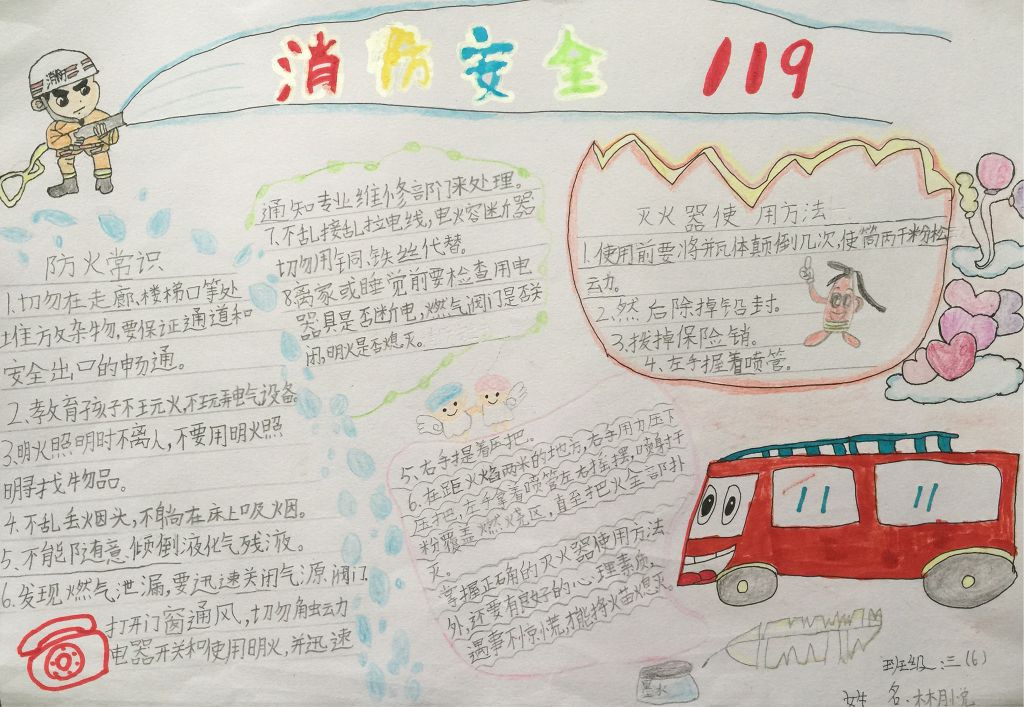 消防安全 119
消防
防火常识
1.切勿在走廊、楼梯口等处
堆放杂物,要保证通道和
安全出口的畅通。
2、教育孩子不玩火,不玩弄电气设备。
3.明火照明时不离人,不要用明火照
明寻找物品。
4.不乱丢烟头,不躺在床上吸烟。
5.不能随意倾倒液化气残液。
6.发现燃气泄漏,要迅速关闭气源阀门,
打开门窗通风,切勿触动
电器开关和使用明火,并迅速
通知专业维修部门来处理。
7.不乱接乱拉电线,电火容断器
切勿用铜、铁丝代替。
8离家或睡觉前要检查用电
器具是否断电,燃气阀门是否关
闭,明火是否熄灭。
灭火器使用方法
1.使用前要将瓶体颠倒几次,使筒内干粉松
动。
2.然后除掉铅封。
3.拔掉保险销。
4、左手握着喷管。
5、右手提着压把。
6.在距火焰两米的地方,右手用力压下
压把,左手拿着喷管左右摇摆,喷射干
粉覆盖燃烧区,直至把火全部扑
灭。
掌握正确的灭火器使用方法
外,还要有良好的心理素质,
遇事不惊慌,才能将火苗熄灭
墨水
班级:三(6)
姓名:林